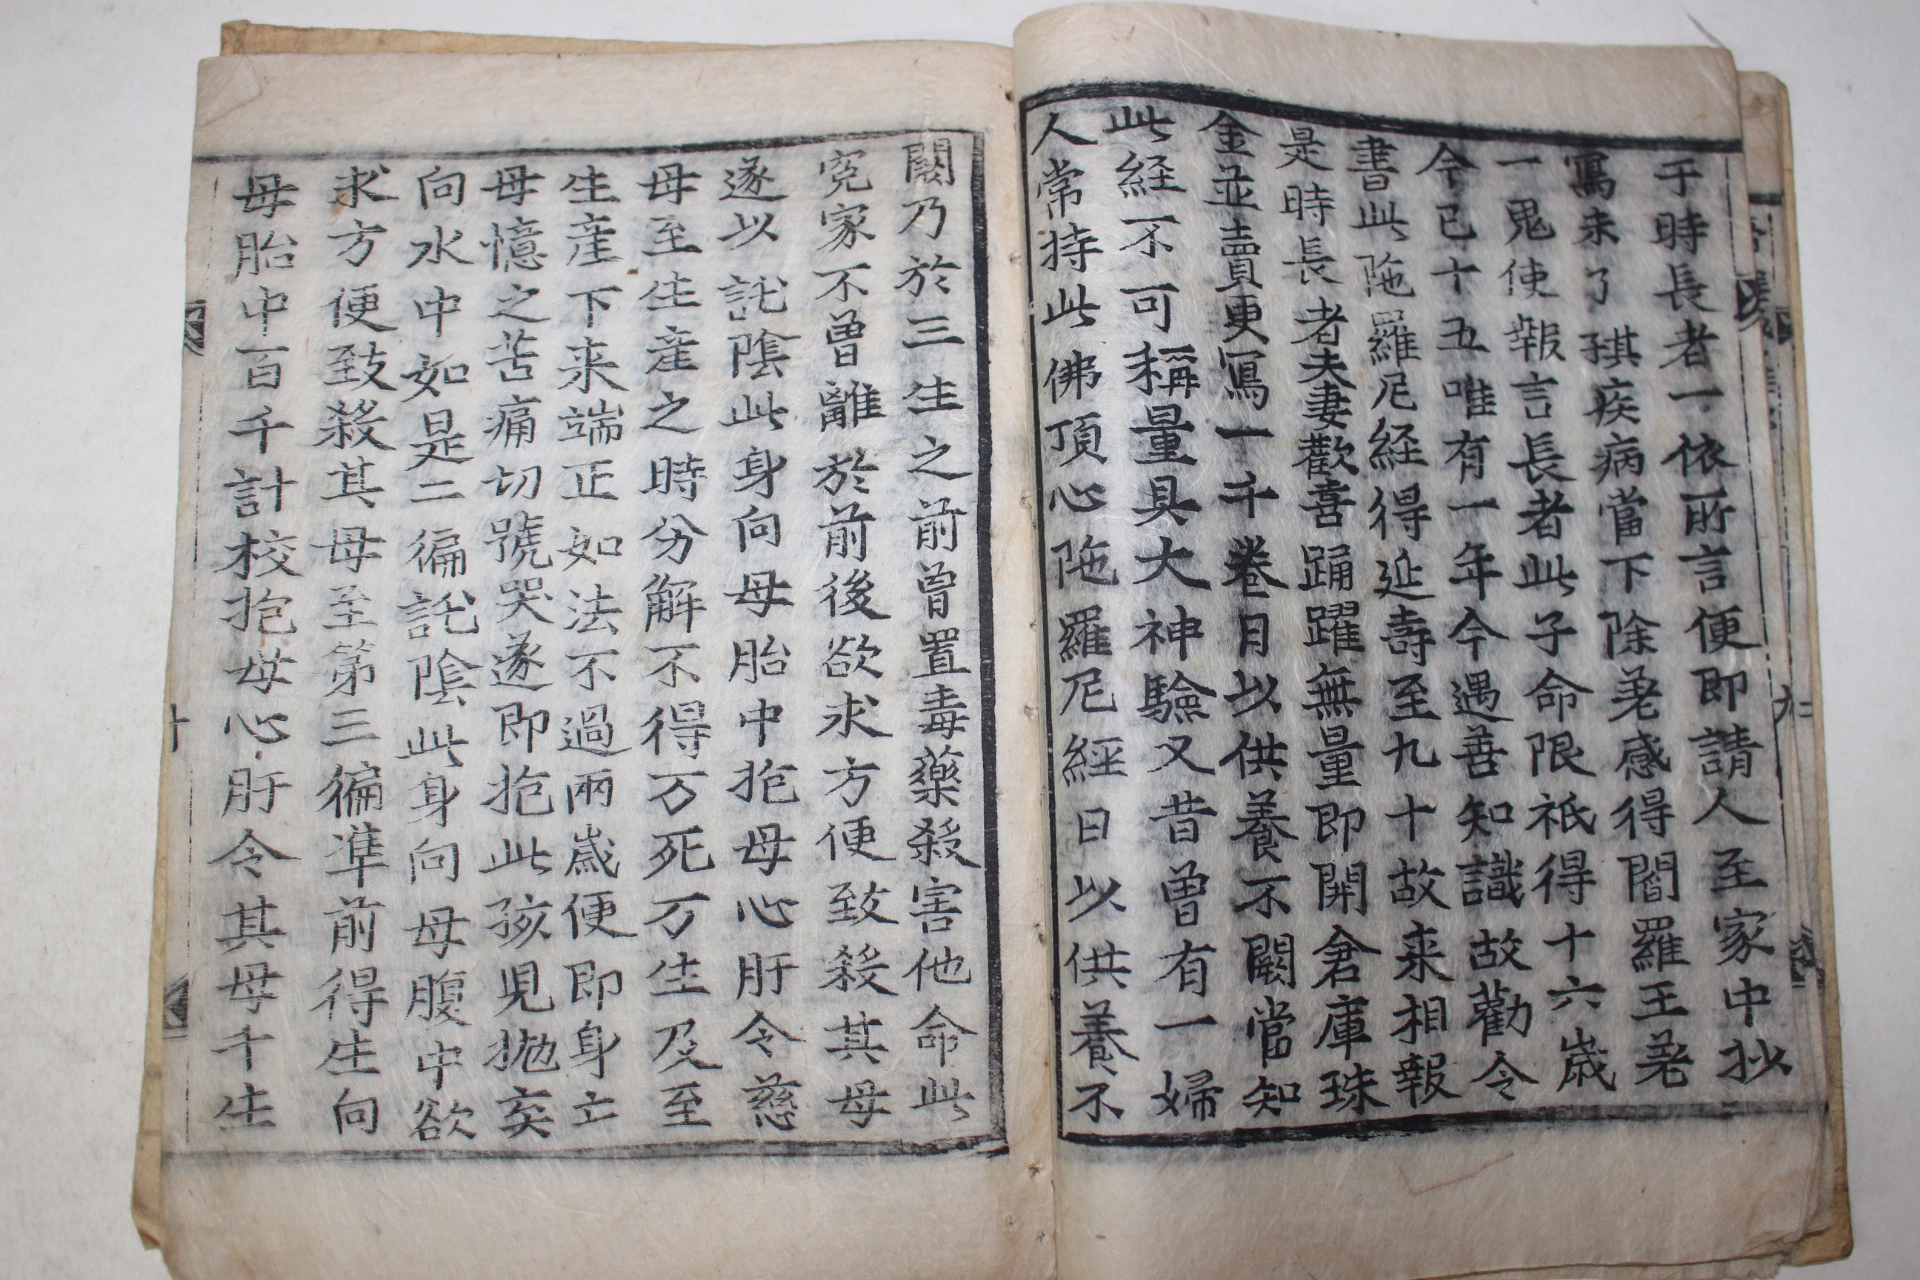 于時長者一依所言便即請人至家中抄
寫未了其疾病當下除差感得閻羅王差
一鬼使報言長者此子命限祇得十六歲
今已十五唯有一年今遇善知識故勸令
書此陁羅尼経得延壽至九十故来相報
是時長者夫妻歡喜踊躍無量即開倉庫珠
金並賣更寫一千卷日以供養不闕當知
此経不可稱量具大神驗又昔曾有一婦
人常持此佛頂心陁羅尼經日以供養不
闕乃於三生之前曾置毒藥殺害他命此
寃家不曾離於前後欲求方便致殺其母
遂以託陰此身向母胎中抱母心肝令慈
母至生産之時分解不得万死万生及至
生産下来端正如法不過兩歲便即身亡
母憶之苦痛切號哭遂即抱此孩兒抛棄
向水中如是二徧託陰此身向母腹中欲
求方便致殺其母至第三徧準前得生向
母胎中百千計校抱母心肝令其母千生
九
十